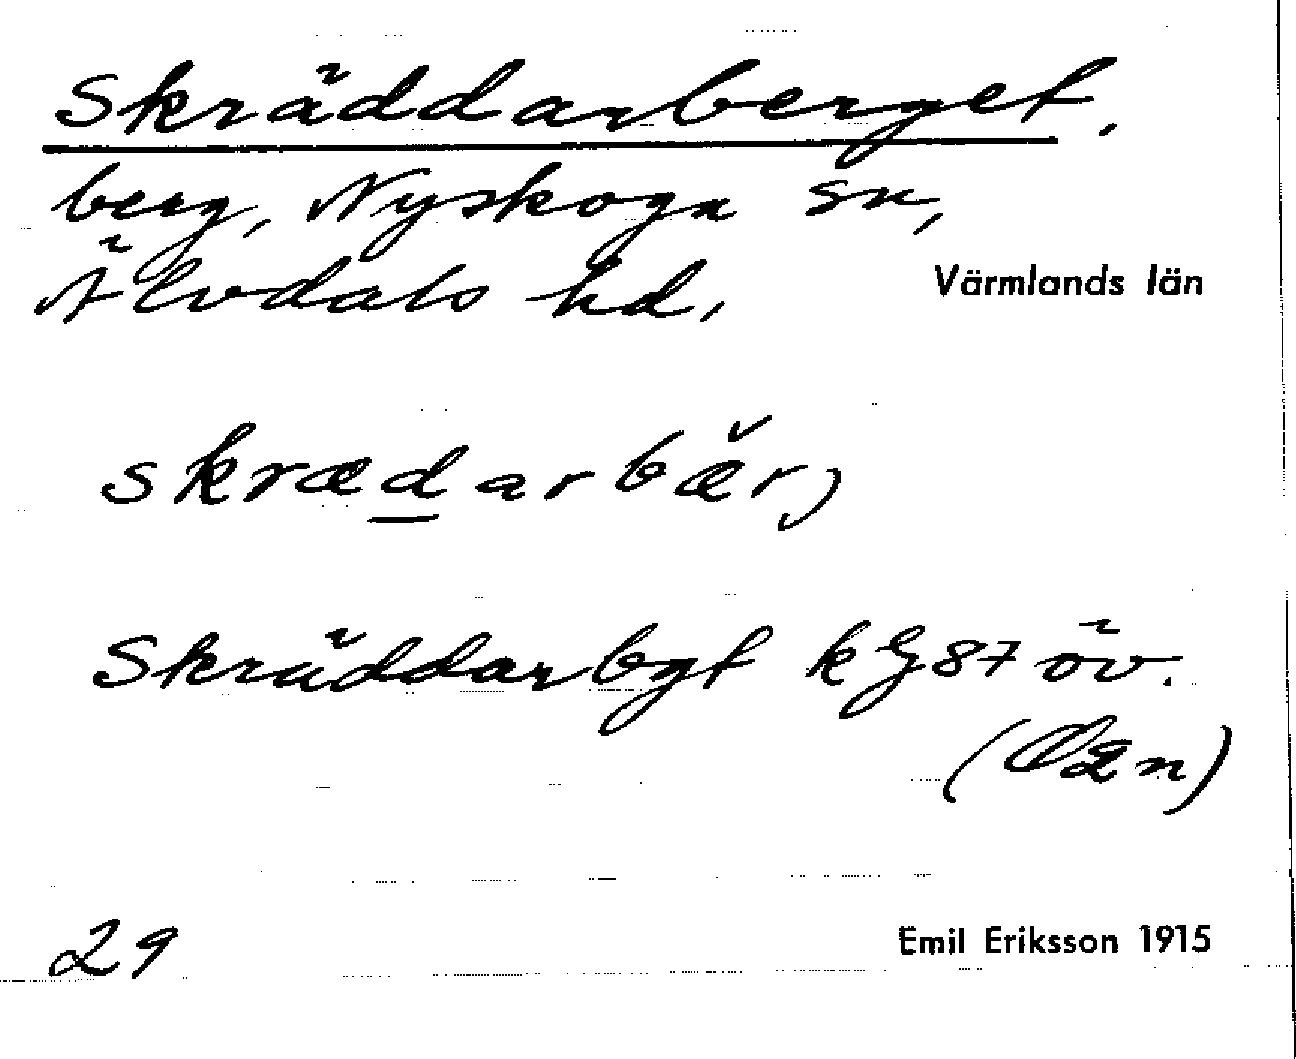 Skräddarberget,
berg, Nyskoga sn,
Älvdals hd,
Värmlands län
skrædarbær,
Skräddarbgt kG87 öv.
29
Emil Eriksson 1915